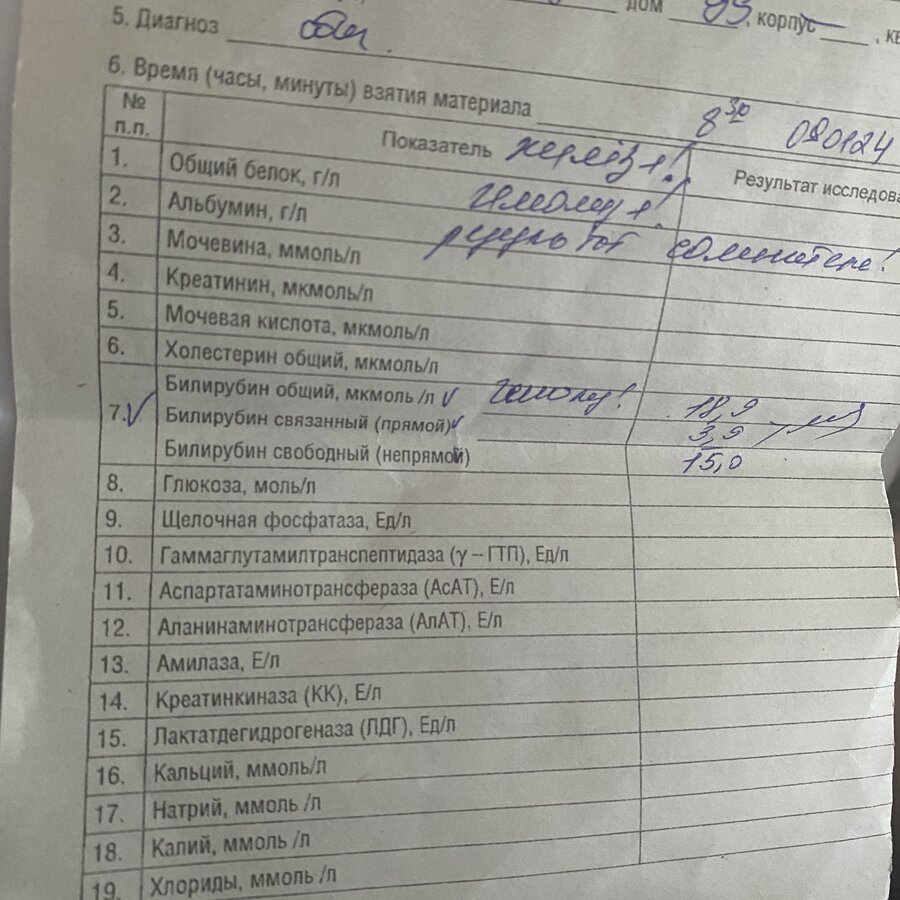 дом 83, корпус —, кв
5. Диагноз
6. Время (часы, минуты) взятия материала 8 30
№ п.п. Показатель Результат исследова
1. Общий белок, г/л
2. Альбумин, г/л
3. Мочевина, ммоль/л
4. Креатинин, мкмоль/л
5. Мочевая кислота, мкмоль/л
6. Холестерин общий, мкмоль/л
7. Билирубин общий, мкмоль /л 18,9
Билирубин связанный (прямой) 3,9
Билирубин свободный (непрямой) 15,0
8. Глюкоза, моль/л
9. Щелочная фосфатаза, Ед/л
10. Гаммаглутамилтранспептидаза (γ – ГТП), Ед/л
11. Аспартатаминотрансфераза (АсАТ), Е/л
12. Аланинаминотрансфераза (АлАТ), Е/л
13. Амилаза, Е/л
14. Креатинкиназа (КК), Е/л
15. Лактатдегидрогеназа (ЛДГ), Ед/л
16. Кальций, ммоль/л
17. Натрий, ммоль /л
18. Калий, ммоль /л
19. Хлориды, ммоль /л